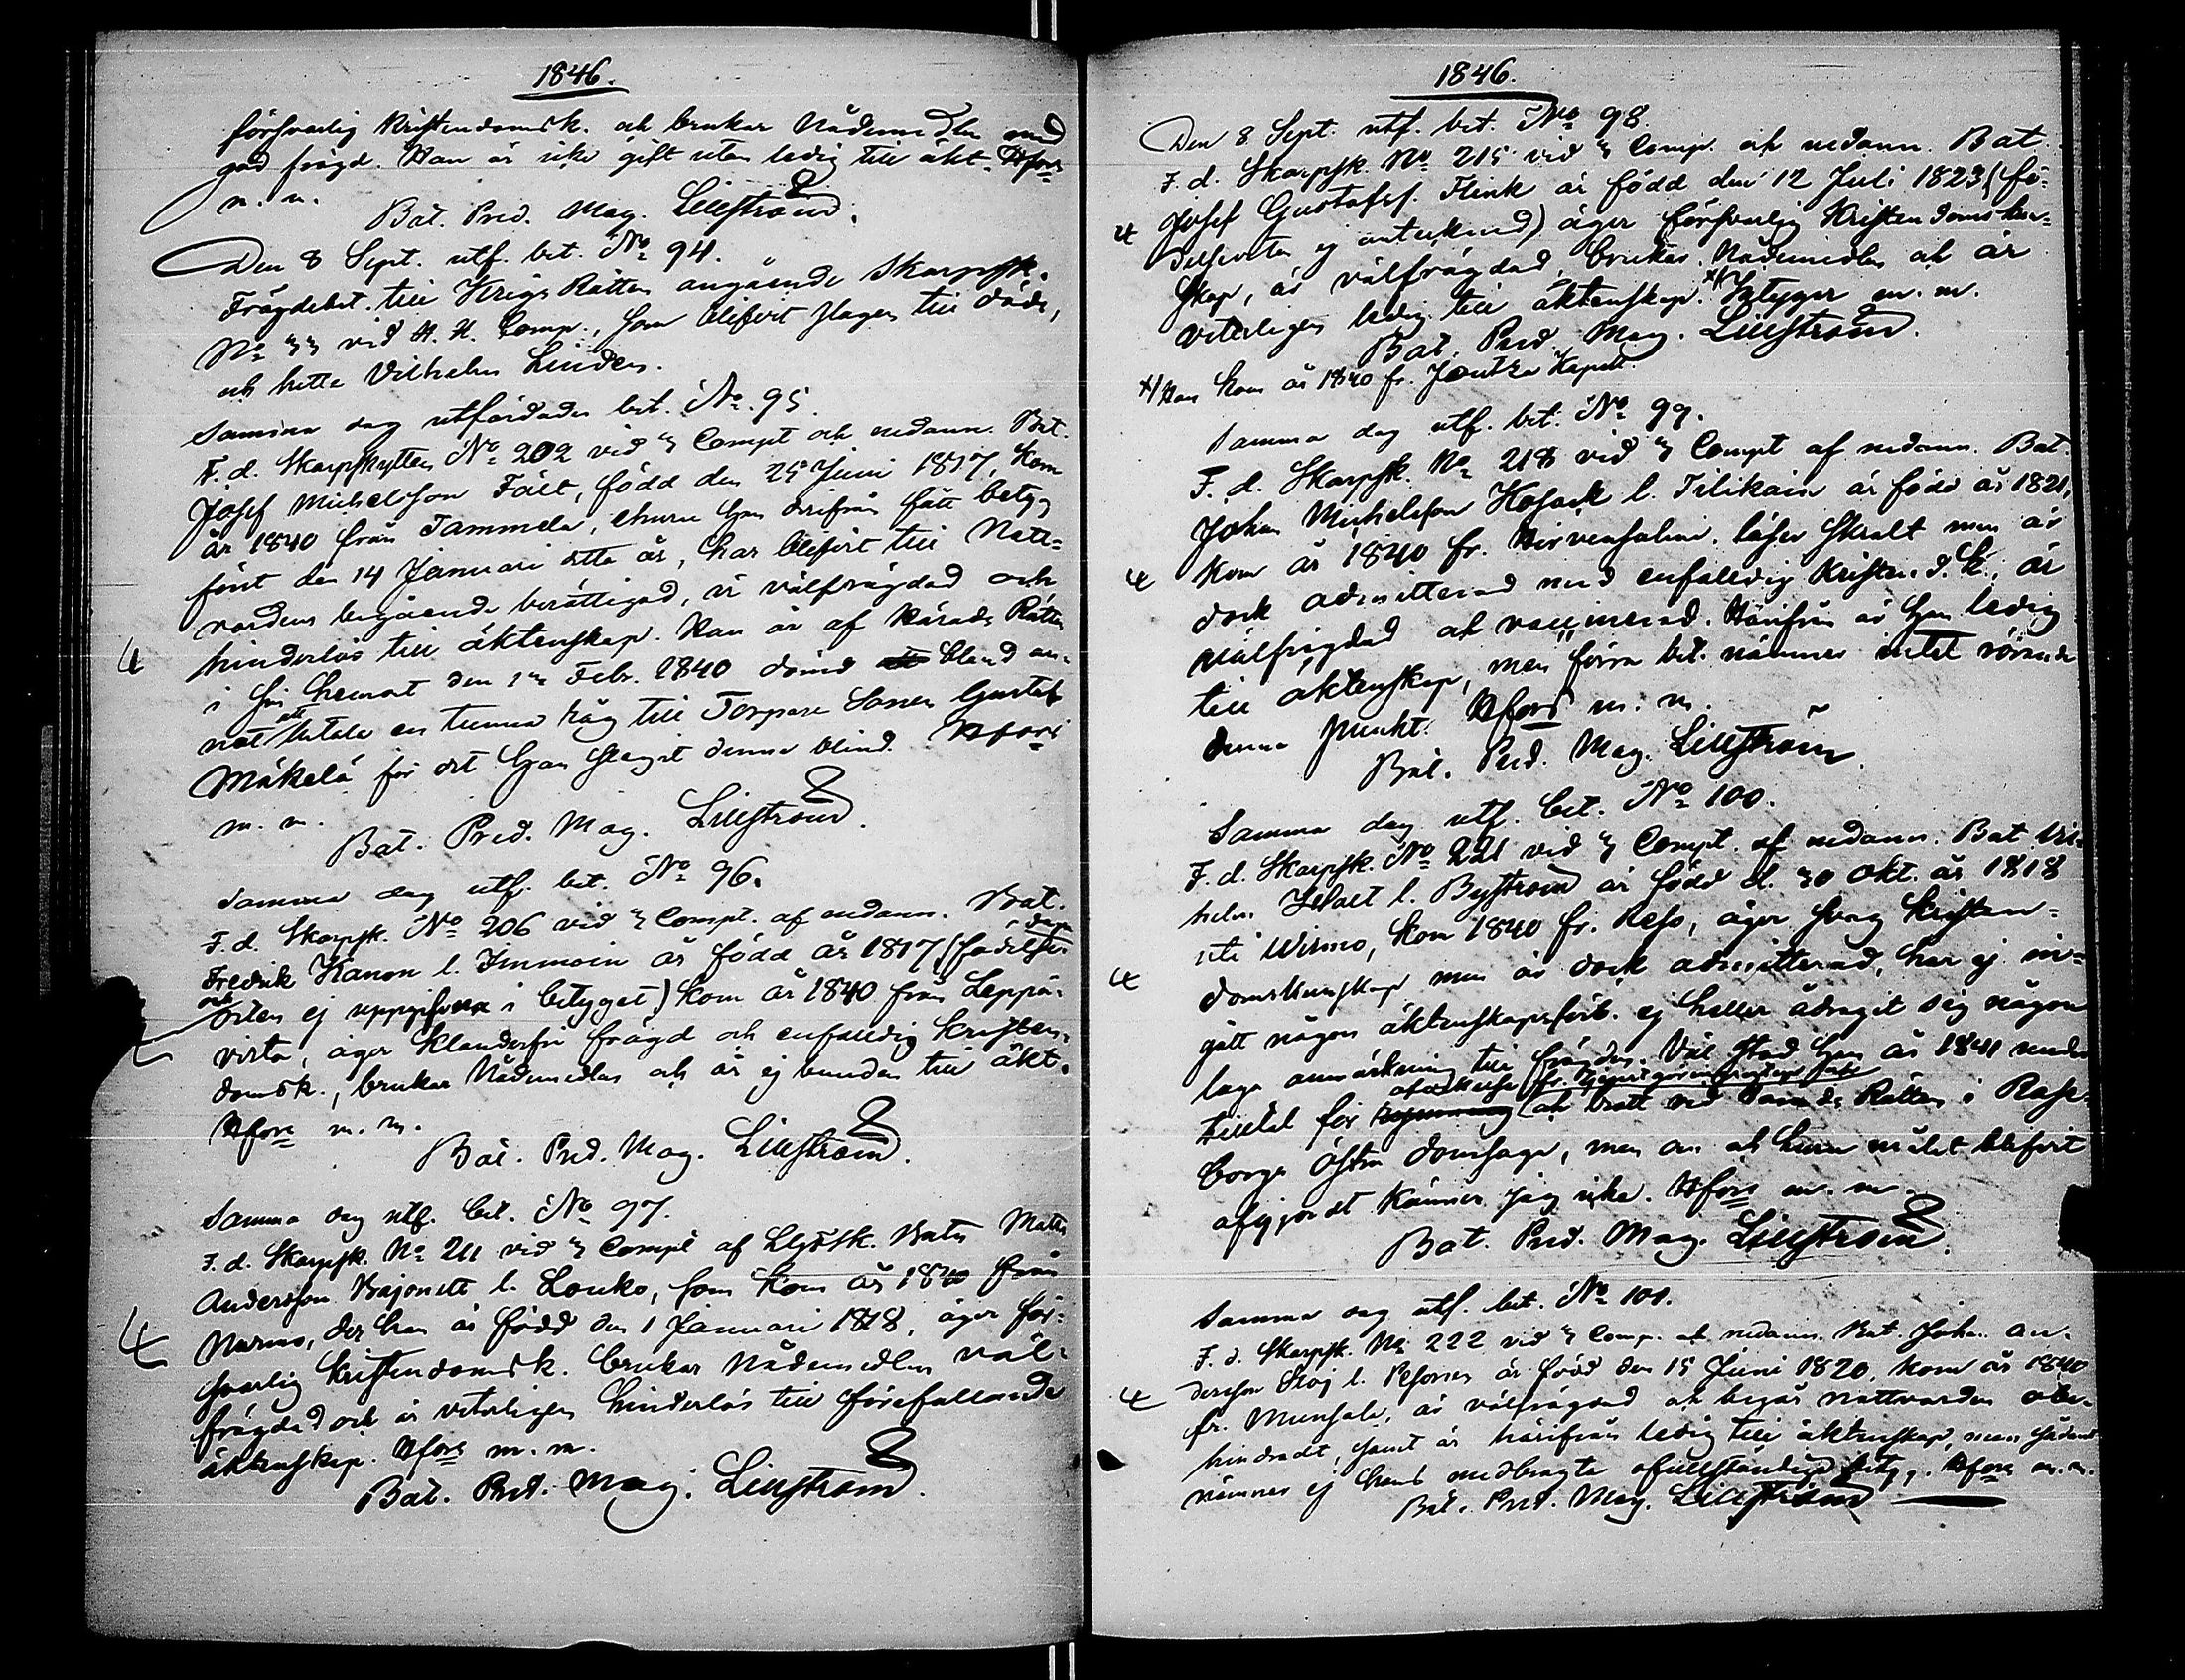 1846.
försvarlig Kristendomsk. och brukar Nådemedlen med
god frägd. Han är icke gift utan ledig till äkt. Hfors
m. m.
Bat. Pred. Mag. Lillström.
Den 8 Sept. utf. bet. No 94.
Frägdebet. till Krigs Rätten angående Skarpsk.
No 33 vid H. K. Comp., som blifvit slagen till döds,
och hette Vilhelm Linden.
Samma dag utfärdades bet. No. 95.
F. d. Skarpskytten No 202 vid 3 Compt och nedann. Bat.
Josef Michelsson Fält, född den 25 Juni 1817, kom
år 1840 från Tammela, ehuru han derifrån fått betyg
först den 14 Januari detta år, har blifvit till Natt-
vardens begående berättigad, är välfrägdad och
hinderlös till äktenskap. Han är af Härads Rätten
4
i sin hemort den 1 Febr. 1840 dömd bland an-
nat att betala en tunna råg till Torpare Sonen Gustaf
Mäkelä för det han slagit denne blind. Hfors
m. m.
Bat. Pred. Mag. Lillström.
Samma dag utf. bet. No 96.
F. d. Skarpsk. No 206 vid 3 Compt. af nedann. Bat.
Fredrik Kanon l. Immoin är född år 1817 (födelse- dagen
och orten ej uppgifvna i betyget) kom år 1840 från Leppä-
virta, äger klanderfri frägd och enfaldig Kristen-
domsk., brukar Nådemedlen och är ej bunden till äkt.
Hfors m. m.
Bat. Pred. Mag. Lillström.
Samma dag utf. bet. No 97.
F. d. Skarpsk. No 211 vid 3 Compt af Bat Matts
Andersson Bajonett l. Louko, som kom år 1840 från
4
Nurmo, der han är född den 1 Januari 1818, äger för-
svarlig Kristendomsk. brukar Nådemedlen väl-
frägdad och är veterligen hinderlös till förefallande
äktenskap. Hfors m. m.
Bat. Pred. Mag. Lillström.
1846.
Den 8 Sept. utf. bet. No 98
F. d. Skarpsk. No 215 vid 3 Comp. och nedann. Bat.
Josef Gustafss. Flink är född den 12 Juli 1823 (fö-
4
delseorten ej antecknad) äger försvarlig Kristendomskun-
skap, är välfrägdad, brukar Nådemedlen och är
veterligen ledig till äktenskap. x) Intygar m. m.
Bat. Pred. Mag. Lillström.
x) Han kom år 1840 fr. Joutka Kapell.
Samma dag utf. bet. No 99.
F. d. Skarpsk. No 218 vid 3 Compt af nedann. Bat.
Johan Michelsson Kosack l. Tilikain är född år 1821,
4
kom år 1840 fr. Hirvensalmi, läser skralt men är
dock admitterad med enfaldig Kristen. d. k., är
välfrägdad och vaccinerad. Härifrån är han ledig
till äktenskap, men förra bet. nämner intet rörande
denna punkt. Hfors m. m.
Bat. Pred. Mag. Lillström.
Samma dag utf. bet. No 100.
F. d. Skarpsk. No 221 vid 3 Compt. af nedann. Bat Vil-
helm l. Byström är född d. 30 Okt. år 1818
uti Wirmo, kom 1840 fr. Reso, äger svag Kristen-
4
domskunskap men är dock admitterad, har ej in-
gått någon äktenskapsförb. ej heller ådragit sig någon
laga anmärkning till frägden. Väl stod han år 1841 under
tilltal för och brott vid Härads Rätten i Rase-
borgs Östra domsaga, men om och huru målet blifvit
afgjordt känner jag icke. Hfors m. m.
Bat. Pred. Mag. Lillström.
Samma dag utf. bet. No 101.
F. d. Skarpsk. No 222 vid 3 Comp. af nedann. Bat. Johan An-
dersson Skog l. Pesonen är född den 15 Juni 1820, kom år 1840
4
fr. Munsala, är välfrägdad och begår nattvarden obe-
hindradt, samt är härifrån ledig till äktenskap, men sådant
nämner ej hans medbragte ofullständiga betyg. Hfors m. m.
Bat. Pred. Mag. Lillström